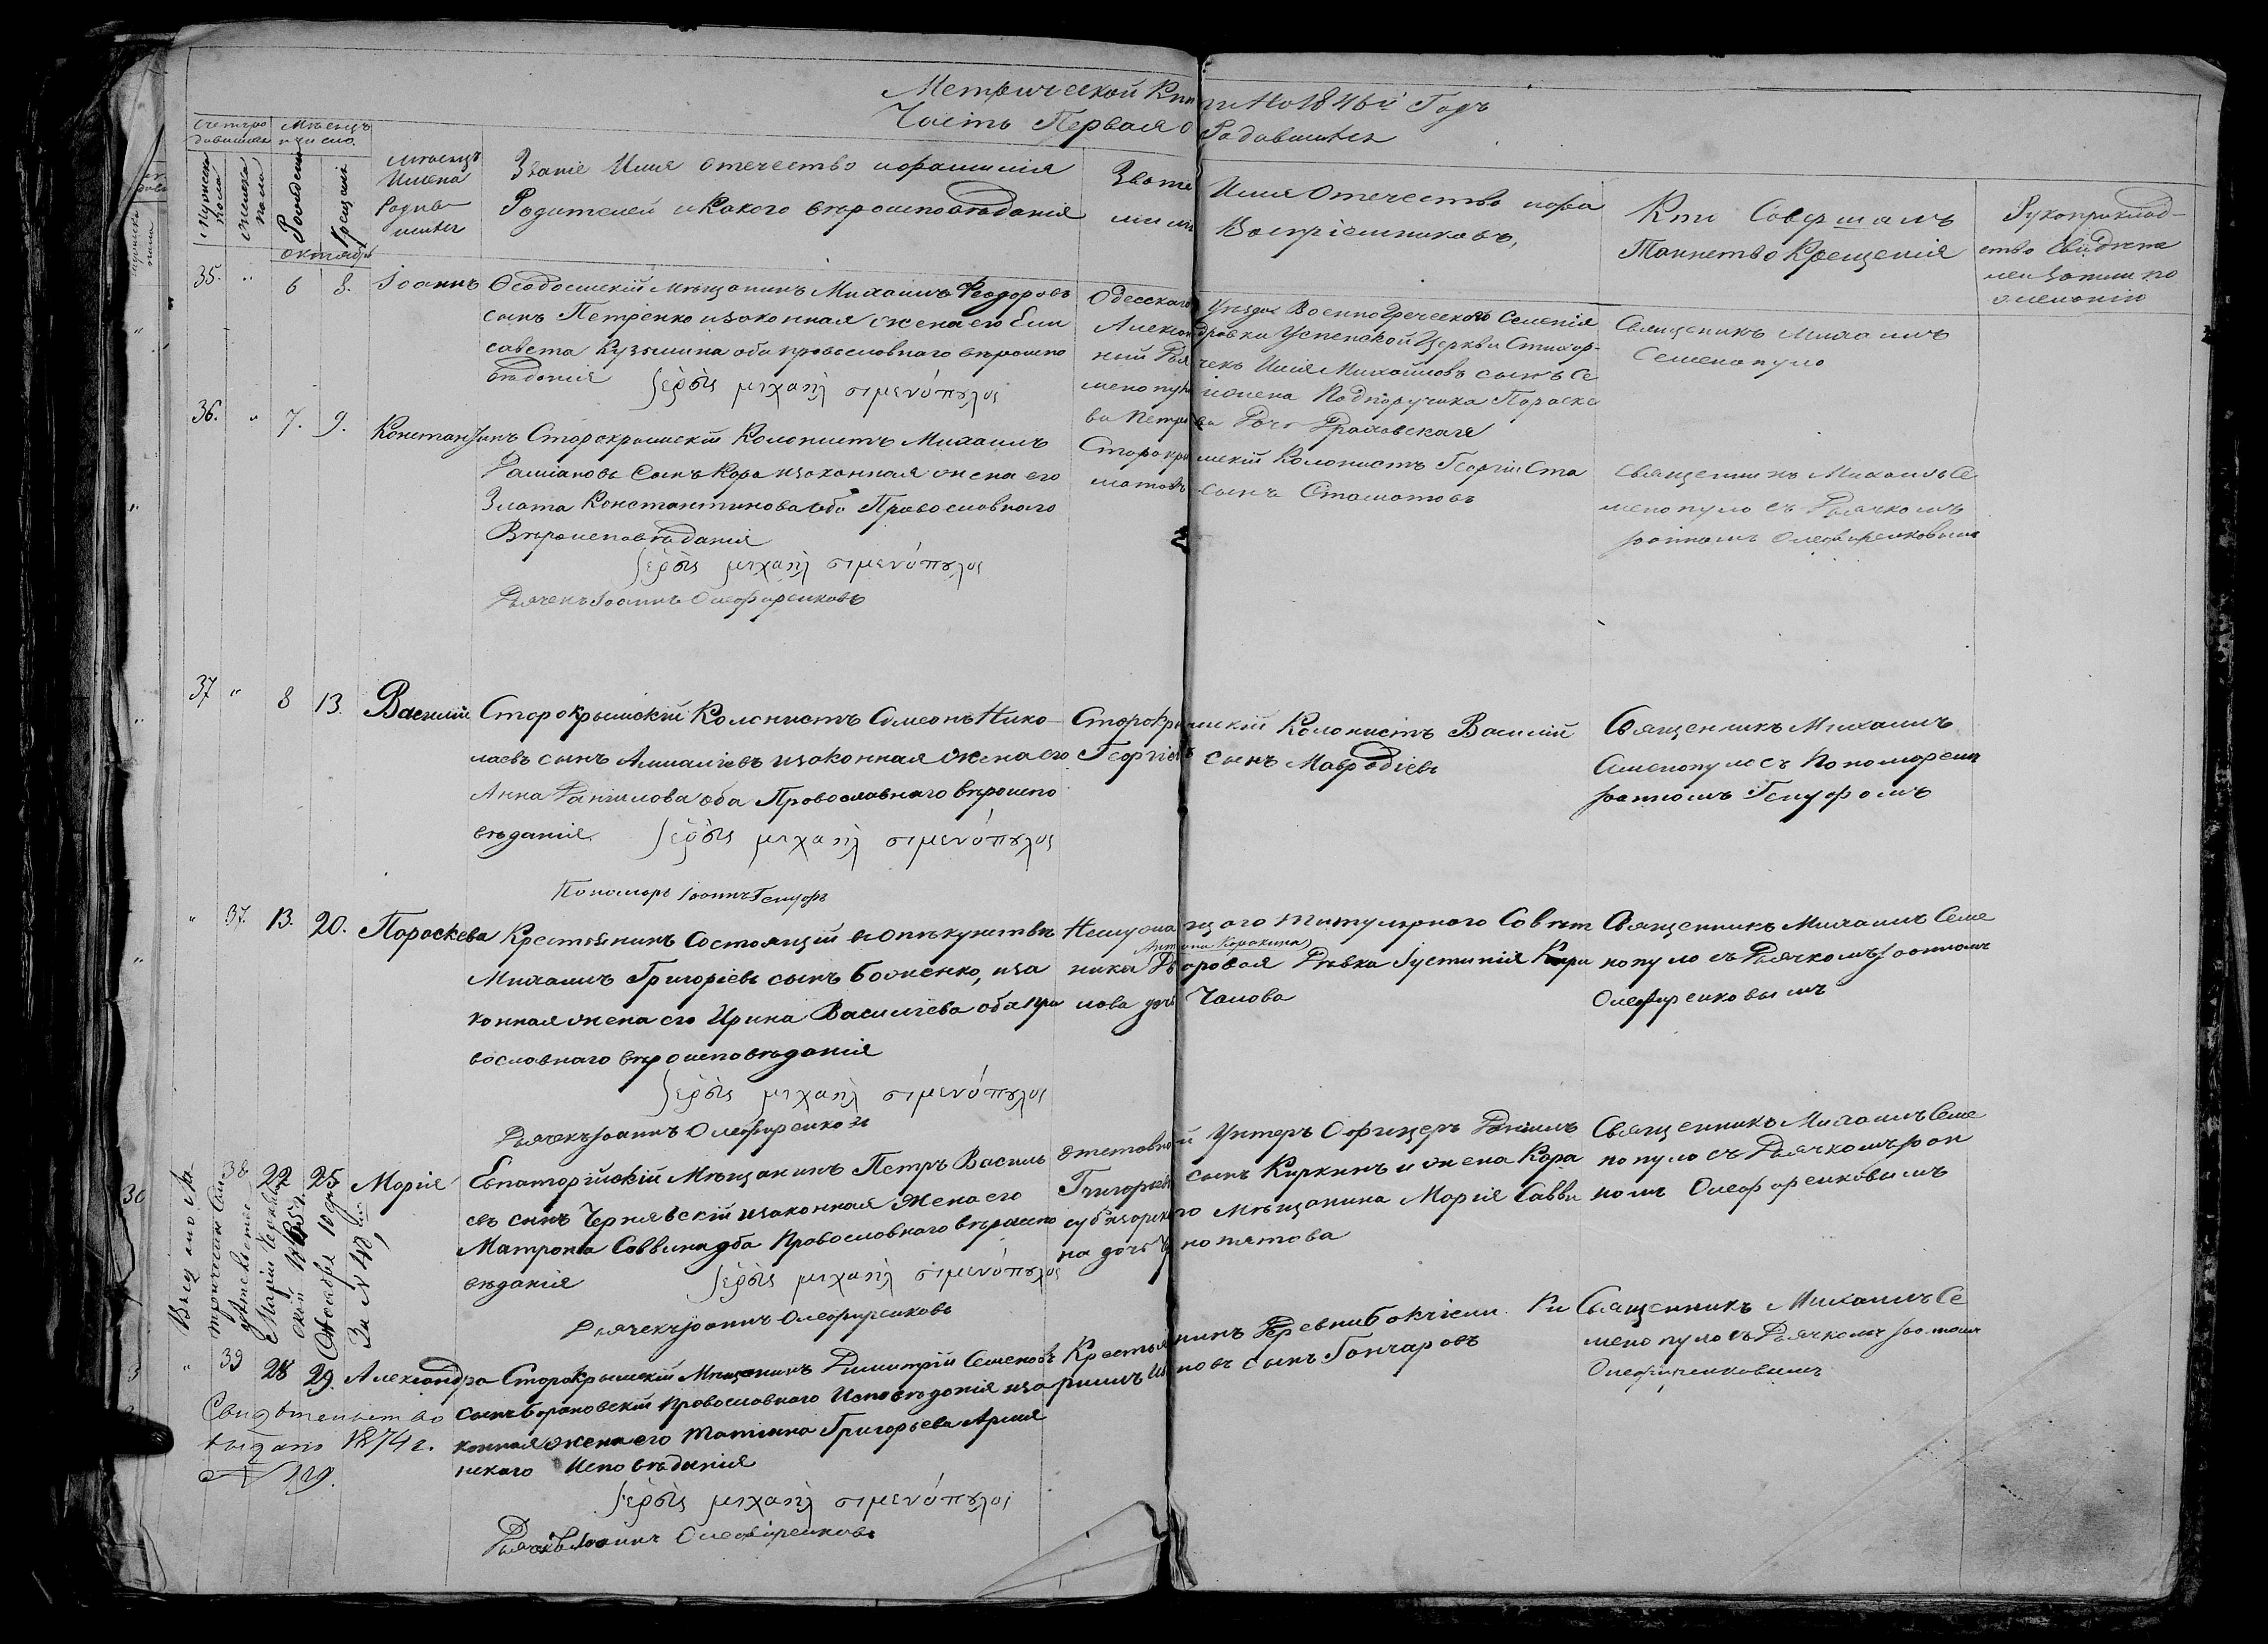 Метрической Книги На 1846й Годъ
Часть Первая о Родившихся
Счетъ ро
дившихся
Мѣсяцъ
и число.
Мужеска
пола
Женска
пола
Рожденія
Крещенія
Имена
Родив
шихся
Званіе Имя отечество и фамилія
Родителей и Какого вѣроисповѣданія
Званіе Имя Отечество и фа
миліи Воспріемниковъ,
Кто Совершалъ
Таинство Крещенія
Рукоприклад-
ство Свидѣте
лей записи по
желанію
Октября
35. " 6 8. Іоаннъ
Феодосійскій Мѣщанинъ Михаилъ Феодоровъ
сынъ Петренко и законная жена его Ели
савета Кузьмина оба православного вѣроиспо
вѣданія
ἱερεὺς μιχαὴλ σιμενόπȣλος
Одесскаго Уѣзда Военно Греческаго Селенія
Александровки Успенской Церкви Стихор-
ный Дьячекъ Илія Михайловъ сынъ Се
менопуло и жена Подпоручика Параске
ва Петрова Дочь Драховская
Священникъ Михаилъ
Семенопуло
36. " 7. 9. Константинъ
Старокрымскій Колонистъ Михаилъ
Даміановъ Сынъ Кора и законная жена его
Злата Константинова оба Православного
Вѣроисповѣданія
ἱερεὺς μιχαὴλ σιμενόπȣλος
Дьячекъ Іоаннъ Олефиренковъ
Старокрымскій Колонистъ Георгій Ста
матовъ сынъ Стаматовъ
Священникъ Михаилъ Се
менопуло съ Дьячкомъ
Іоанномъ Олефиренковымъ
37 " 8 13. Василій
Старокрымскій Колонистъ Симеонъ Нико-
лаевъ сынъ Аммаліевъ и законная жена его
Анна Данилова оба Православного вѣроиспо
вѣданія.
ἱερεὺς μιχαὴλ σιμενόπȣλος
Пономарь Іоаннъ Генуфъ
Старокрымскій Колонистъ Василій
Георгіевъ сынъ Мавродіевъ
Священникъ Михаилъ
Семенопуло съ Пономаремъ
Іоанномъ Генуфомъ
" 37. 13. 20. Параскева
Крестьянинъ Состоящій въ опѣкунствѣ
Михаилъ Григоріевъ сынъ Боженко, и за
конная жена его Ирина Василіева оба пра
вославнаго вѣроисповѣданія
ἱερεὺς μιχαὴλ σιμενόπȣλος
Дьячекъ Іоаннъ Олефиренковъ
Титулярного Совѣт
Антона Корокина
ника Дворовая Дѣвка Іустинія Кири
лова дочь Чалова
Священникъ Михаилъ Семе
нопуло съ Дьячкомъ Іоанномъ
Олефиренковымъ
38 22 25 Марія
Евпаторійскій Мѣщанинъ Петръ Василь
евъ сынъ Чернявскій и законная жена его
Матрона Саввина оба Православного вѣроиспо
вѣданія
ἱερεὺς μιχαὴλ σιμενόπȣλος
Дьячекъ Іоаннъ Олефиренковъ
Отставной Унтеръ Офицеръ Данилъ
Григорьевъ сынъ Киркинъ и жена Кара
субазарскаго Мѣщанина Марія Савви
на дочь
Священникъ Михаилъ Семе
нопуло съ Дьячкомъ Іоан
номъ Олефиренковымъ
" 39 28 29. Александра
Старокрымскій Мѣщанинъ Димитрій Семеновъ
сынъ Борановскій православного Исповѣданія и за
конная жена его Татіана Григорьева Армя
нскаго Исповѣданія
ἱερεὺς μιχαὴλ σιμενόπȣλος
Дьячекъ Іоаннъ Олефиренковъ
Крестьянинъ Деревни Ки
рилъ Ивановъ сынъ Гончаровъ
Священникъ Михаилъ Се
менопуло съ Дьячкомъ Іоанномъ
Олефиренковымъ
Свидѣтельство
выдано 1874 г.
№ 129.